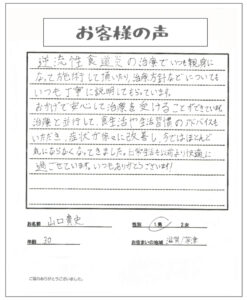 お客様の声
逆流性食道炎の治療でいつも親身に
なって施術して頂いたり、治療方針などについても
いつも丁寧に説明してもらっています。
おかげで安心して治療を受けることができています。
治療と並行して、食生活や生活習慣のアドバイスも
いただき、症状が徐々に改善し、今ではほとんど
気にならなくなってきました。日常生活も以前より快適に
過ごせています。いつもありがとうございます!
お名前 山口貴史 性別 1男 2女
年齢 30 お住まいの地域 滋賀/草津
ご協力ありがとうございました。